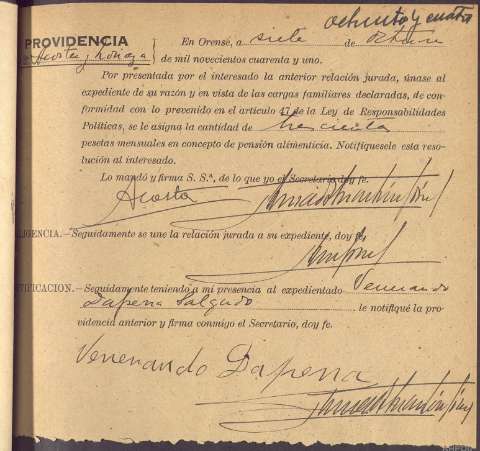 ochenta y cuatro
PROVIDENCIA
En Orense, a siete de Octubre
Acosta y Noriega
de mil novecientos cuarenta y uno.
Por presentada por el interesado la anterior relación jurada, únase al
expediente de su razón y en vista de las cargas familiares declaradas, de con-
formidad con lo prevenido en el artículo 47 de la Ley de Responsabilidades
Políticas, se le asigna la cantidad de trescientas
pesetas mensuales en concepto de pensión alimenticia. Notifíquesele esta reso-
lución al interesado.
Lo mandó y firma S. S.ª, de lo que yo el Secretario doy fe.
Acosta
LIGENCIA.—Seguidamente se une la relación jurada a su expediente, doy fe.
TIFICACION.—Seguidamente teniendo a mi presencia al expedientado Venerando
Dapena Salgado le notifiqué la pro-
videncia anterior y firma conmigo el Secretario, doy fe.
Venerando Dapena